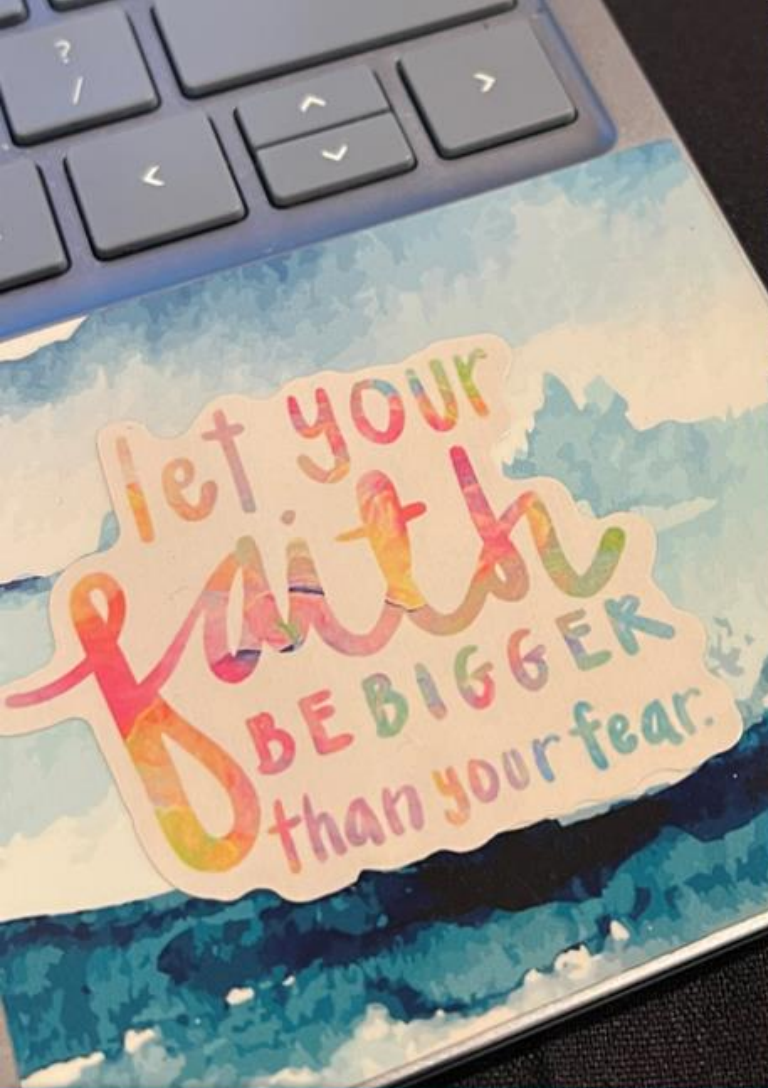 ?
/
let your
faith
BE BIGGER
than your fear.